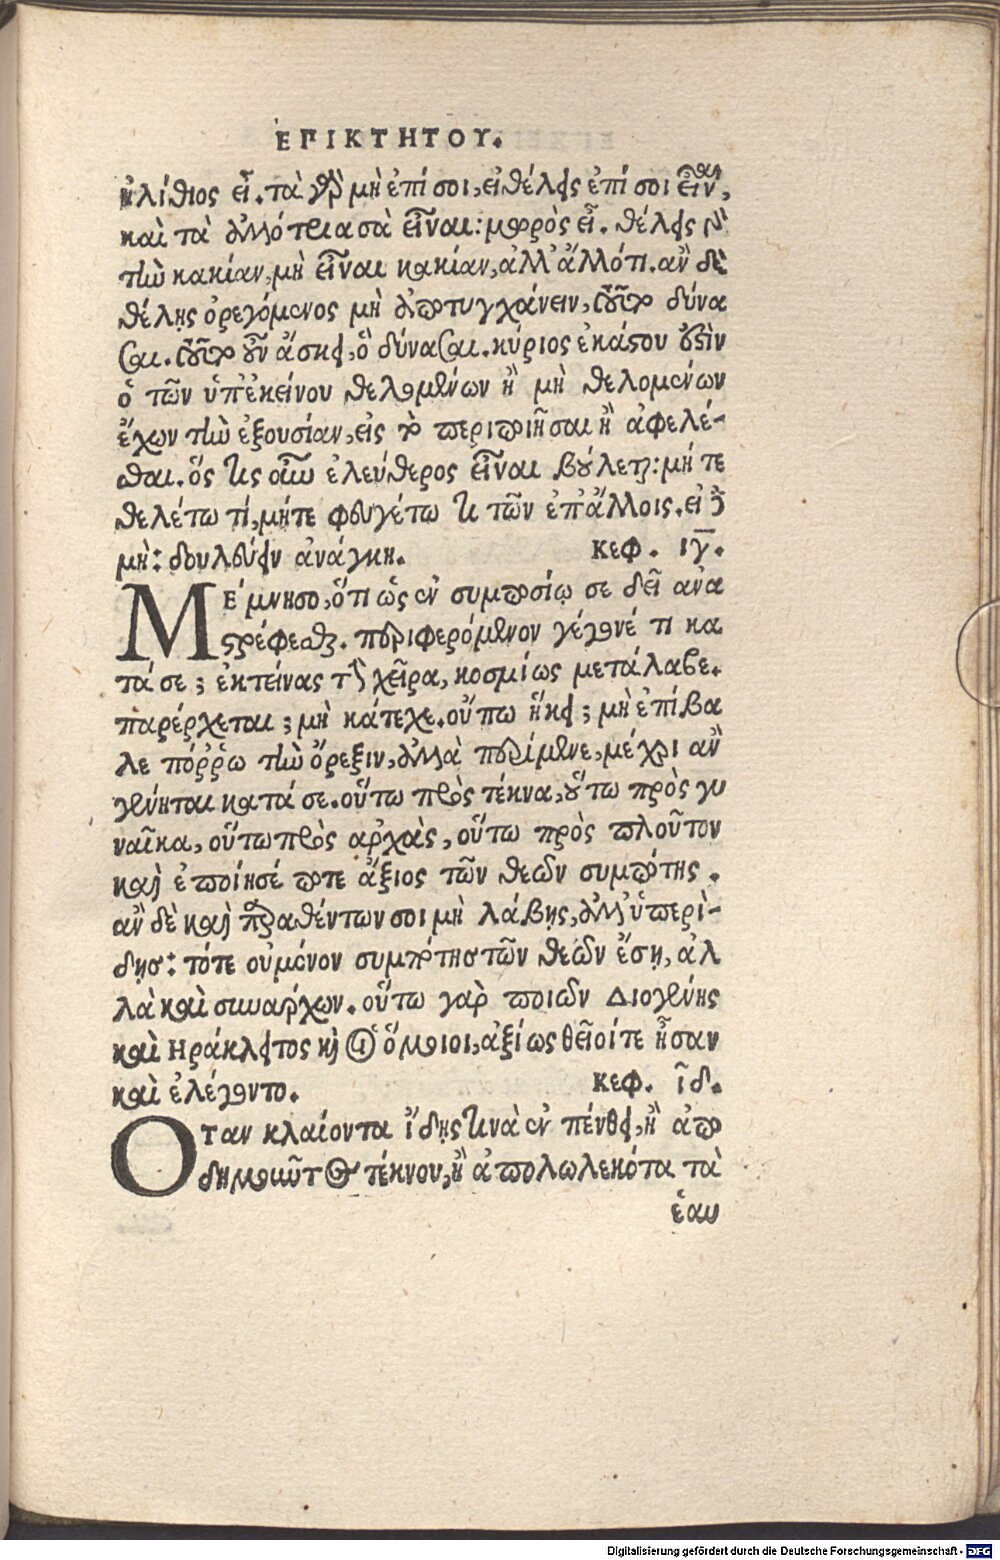 ἘΠΙΚΤΗΤΟΥ.
ἠλίθιος εἶ. τὰ γὰρ μὴ ἐπί σοι, εἰ θέλεις ἐπί σοι εἶναι,
καὶ τὰ ἀλλότρια σὰ εἶναι: μωρὸς εἶ. θέλεις γὰρ
τὴν κακίαν, μὴ εἶναι κακίαν, ἀλλ' ἄλλό τι. ἂν δὲ
θέλῃς ὀρεγόμενος μὴ ἀποτυγχάνειν, τοῦτο δύνα
σαι. τοῦτο οὖν ἄσκει, ὃ δύνασαι. κύριος ἑκάστου ἐστὶν
ὁ τῶν ὑπ' ἐκείνου θελομένων ἢ μὴ θελομένων
ἔχων τὴν ἐξουσίαν, εἰς τὸ περιποιῆσαι ἢ ἀφελέ-
σθαι. ὅς τις οὖν ἐλεύθερος εἶναι βούλεται: μή τε
θελέτω τί, μήτε φευγέτω τι τῶν ἐπ' ἄλλοις. εἰ δὲ
μὴ: δουλεύειν ἀνάγκη. κεφ. ιγ.
ΜΕ΄μνησο, ὅτι ὡς ἐν συμποσίῳ σε δεῖ ἀνα
στρέφεσθαι. περιφερόμενον γέγονέ τι κα
τά σε; ἐκτείνας τὴν χεῖρα, κοσμίως μετάλαβε.
παρέρχεται; μὴ κάτεχε. οὔπω ἥκει; μὴ ἐπίβα
λε πόῤῥω τὴν ὄρεξιν, ἀλλὰ περίμενε, μέχρι ἂν
γένηται κατά σε. οὕτω πρὸς τέκνα, οὕτω πρὸς γυ
ναῖκα, οὕτω πρὸς ἀρχὰς, οὕτω πρὸς πλοῦτον
καὶ ἐποίησέ ποτε ἄξιος τῶν θεῶν συμπότης.
ἂν δὲ καὶ παραθέντων σοι μὴ λάβῃς, ἀλλ' ὑπερί-
δῃσ: τότε οὐ μόνον συμπότησ τῶν θεῶν ἔσῃ, ἀλ
λὰ καὶ συνάρχων. οὕτω γὰρ ποιῶν Διογένης
καὶ Ηράκλειτος καὶ οἱ ὅμοιοι, ἀξίως θεῖοί τε ἦσαν
καὶ ἐλέγοντο. κεφ. ιδ.
Οταν κλαίοντα ἴδῃς τινὰ ἐν πένθει, ἢ ἀπο
δημοῦντος τέκνου, ἢ ἀπολωλεκότα τὰ
ἑαυ
Digitalisierung gefördert durch die Deutsche Forschungsgemeinschaft - DFG